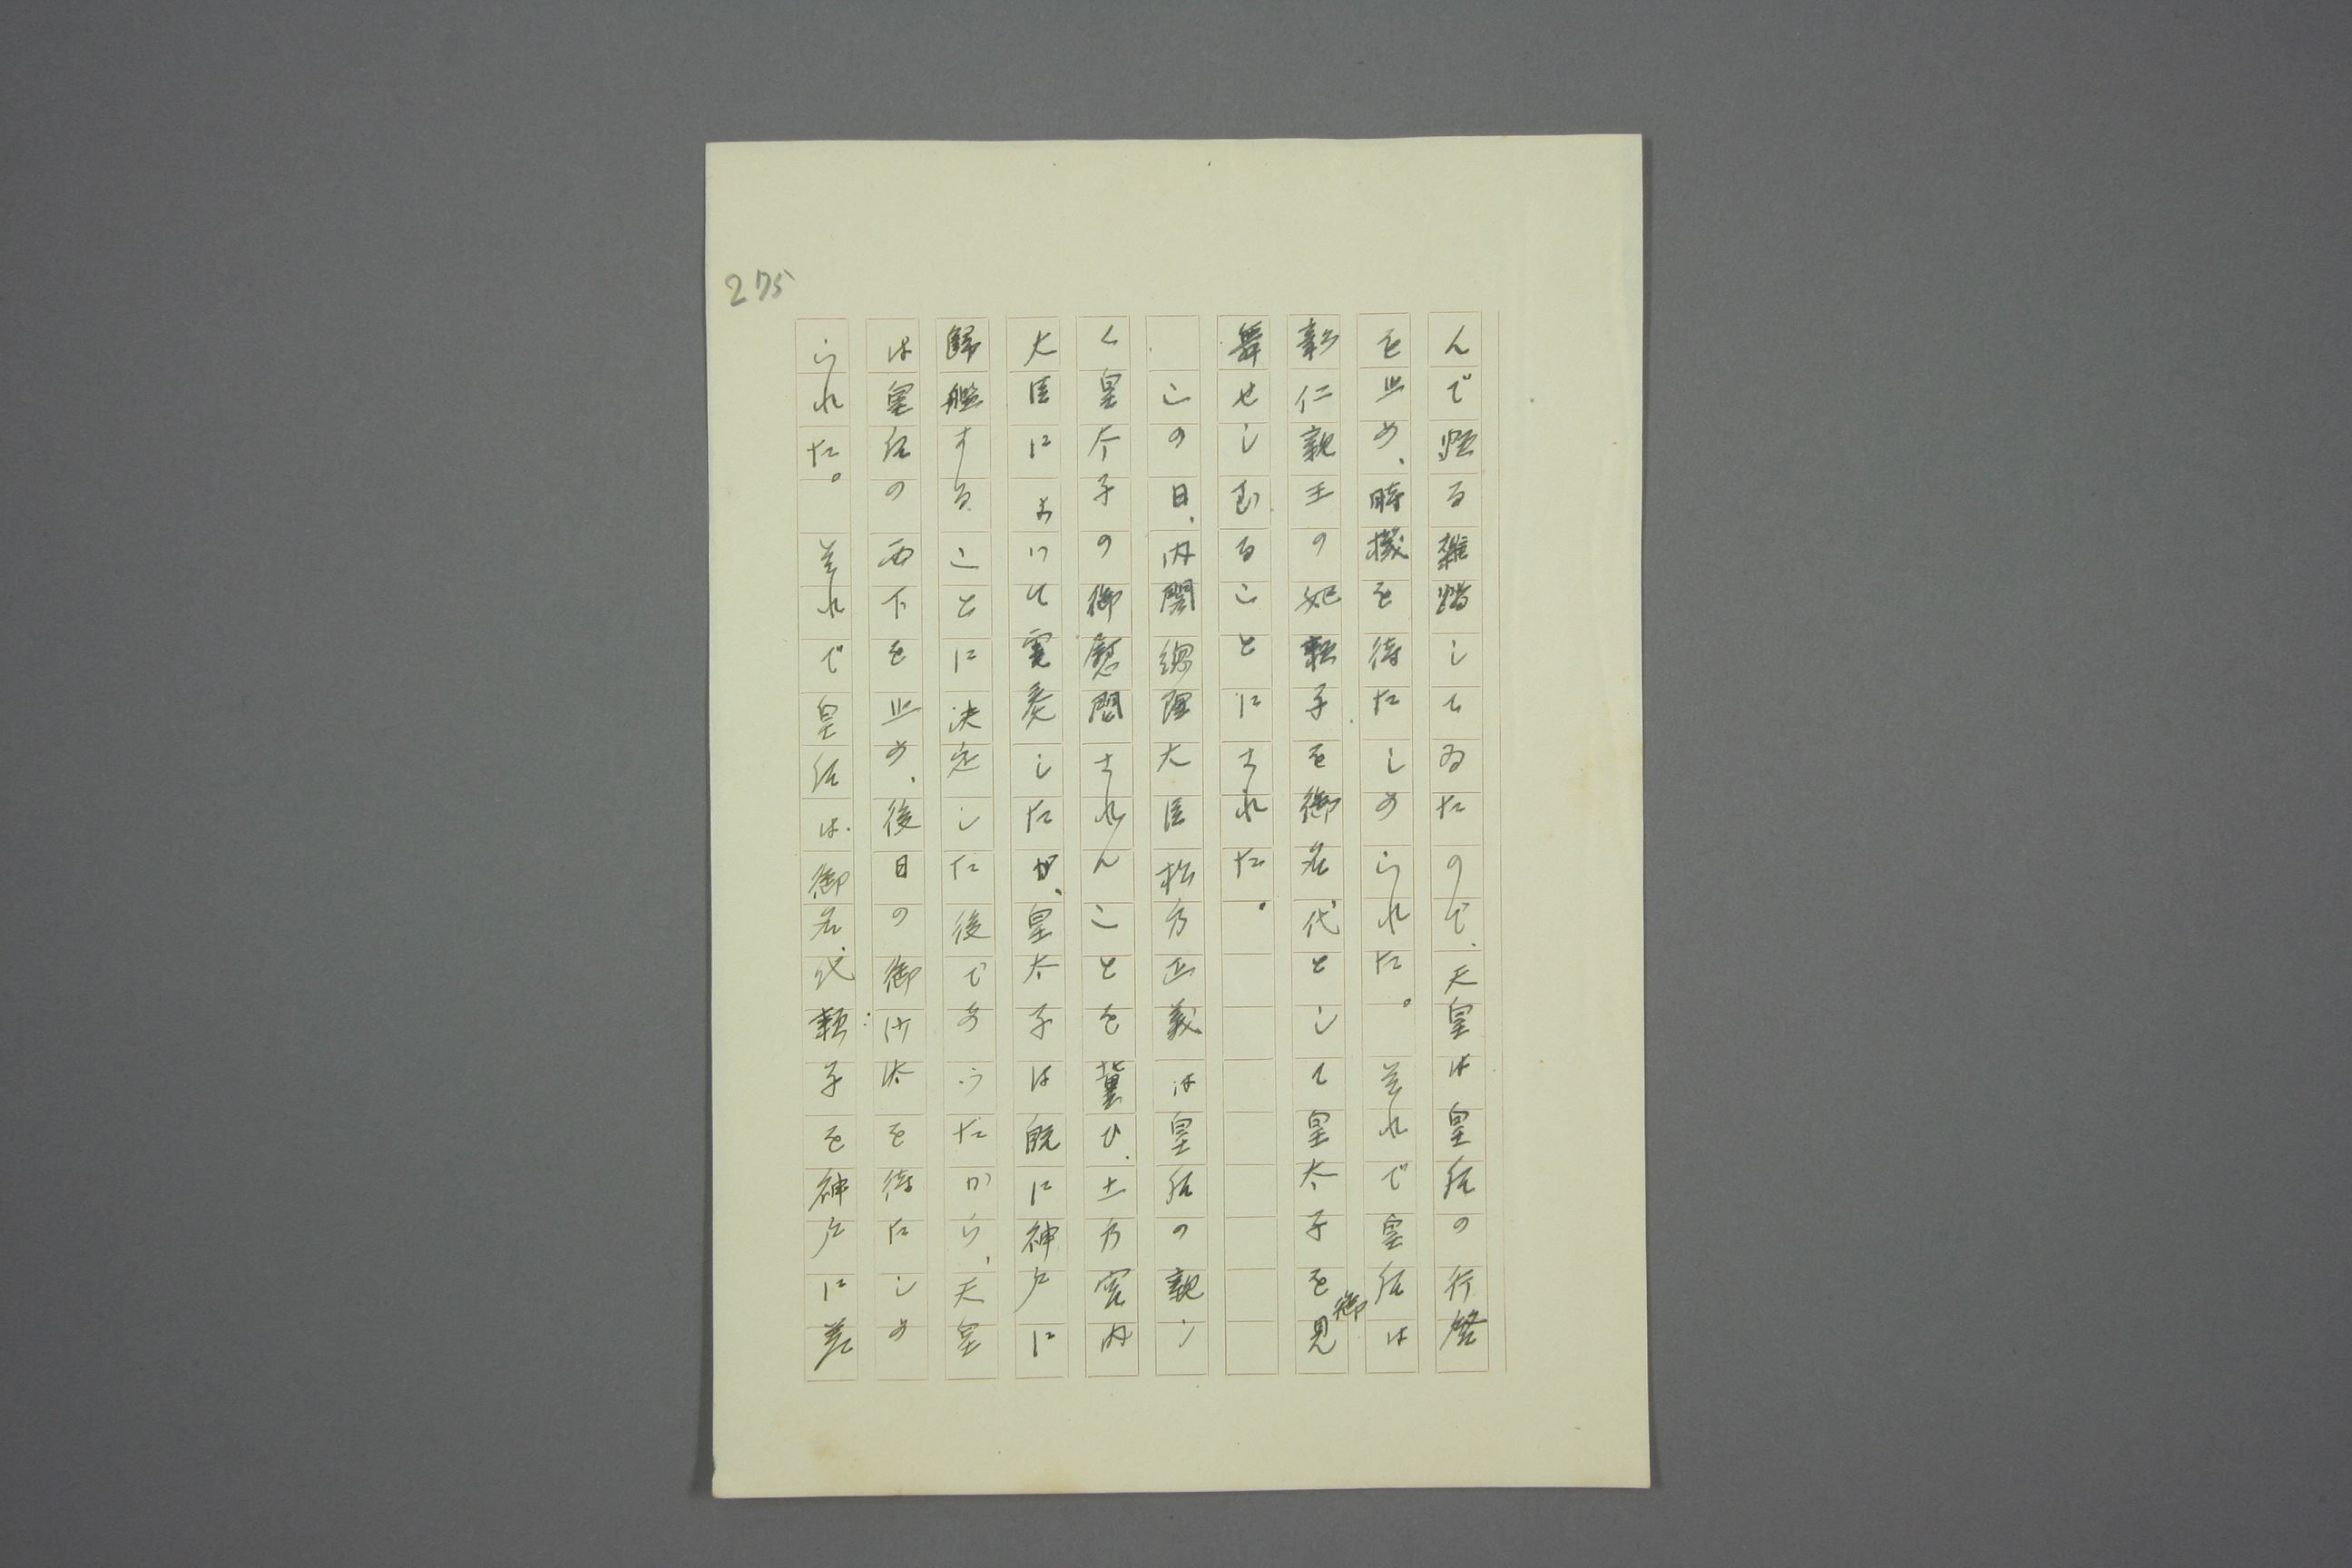 275
んで頗る雑踏してゐたので、天皇は皇后の行啓
を止め、時機を待たしめられた。 それで皇后は
彰仁親王の妃頼子を御名代として皇太子を御見
舞せしむることにされた。
この日、内閣總理大臣松方正義は皇后の親し
く皇太子の御慰問されんことを冀ひ、土方宮内
大臣において電奏したが、皇太子は既に神戸に
歸艦することに決定した後であつたから、天皇
は皇后の西下を止め、後日の御沙汰を待たしめ
られた。 それで皇后は御名代頼子を神戸に差